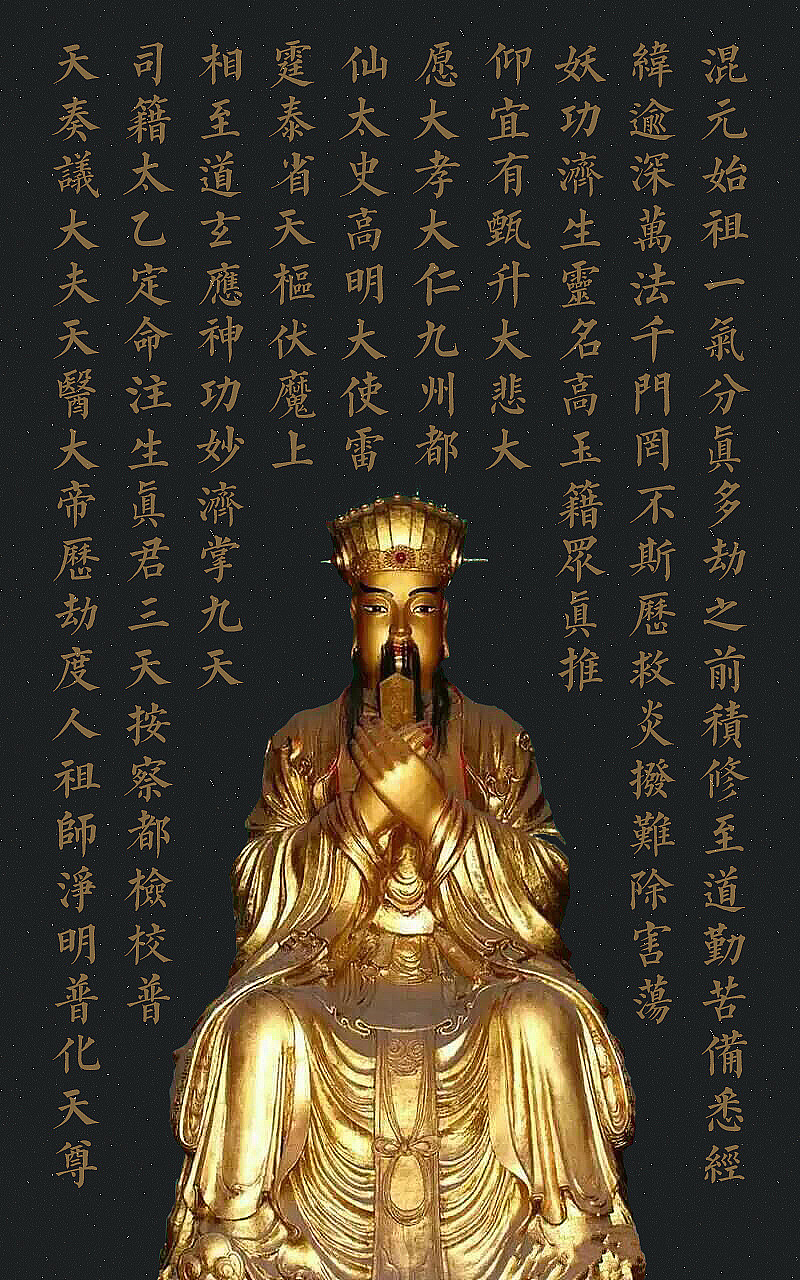 混元始祖一氣分眞多劫之前積修至道勤苦備悉經
緯逾深萬法千門罔不斯歷救炎撥難除害蕩
妖功濟生靈名高玉籍眾眞推
仰宜有甄升大悲大
愿大孝大仁九州都
仙太史高明大使雷
霆泰省天樞伏魔上
相至道玄應神功妙濟掌九天
司籍太乙定命注生眞君三天按察都檢校普
天奏議大夫天醫大帝歷劫度人祖師淨明普化天尊